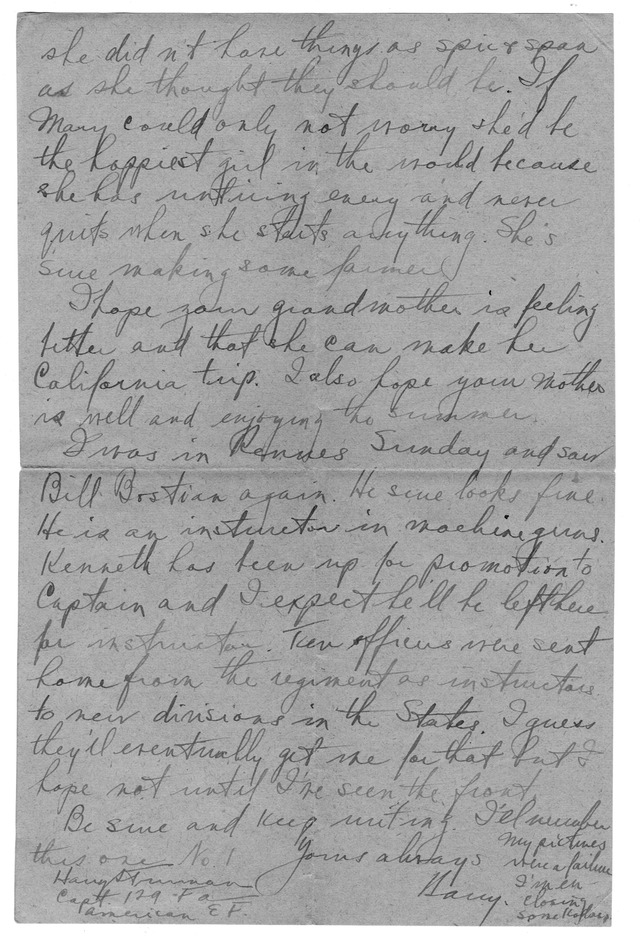 she didn't have things as spic & span
as she thought they should be. If
Mary could only not worry she'd be
the happiest girl in the world because
she has untiring energy and never
quits when she starts anything. She's
sure making some farmer
I hope your grandmother is feeling
better and that she can make her
California trip. I also hope your mother
is well and enjoying the summer.
I was in Rennes Sunday and saw
Bill Bostian again. He sure looks fine.
He is an instructor in machine guns.
Kenneth has been up for promotion to
Captain and I expect he'll be left here
for instructor. Ten officers were sent
home from the regiment as instructors
to new divisions in the States. I guess
they'll eventually get me for that but I
hope not until I've seen the front
Be sure and keep writing. I'll number
this one No. 1 Yours always
Harry.
My pictures
were a failure
I'm en-
closing
some Kodaks
Harry S Truman
Capt 129 F a
American E F.